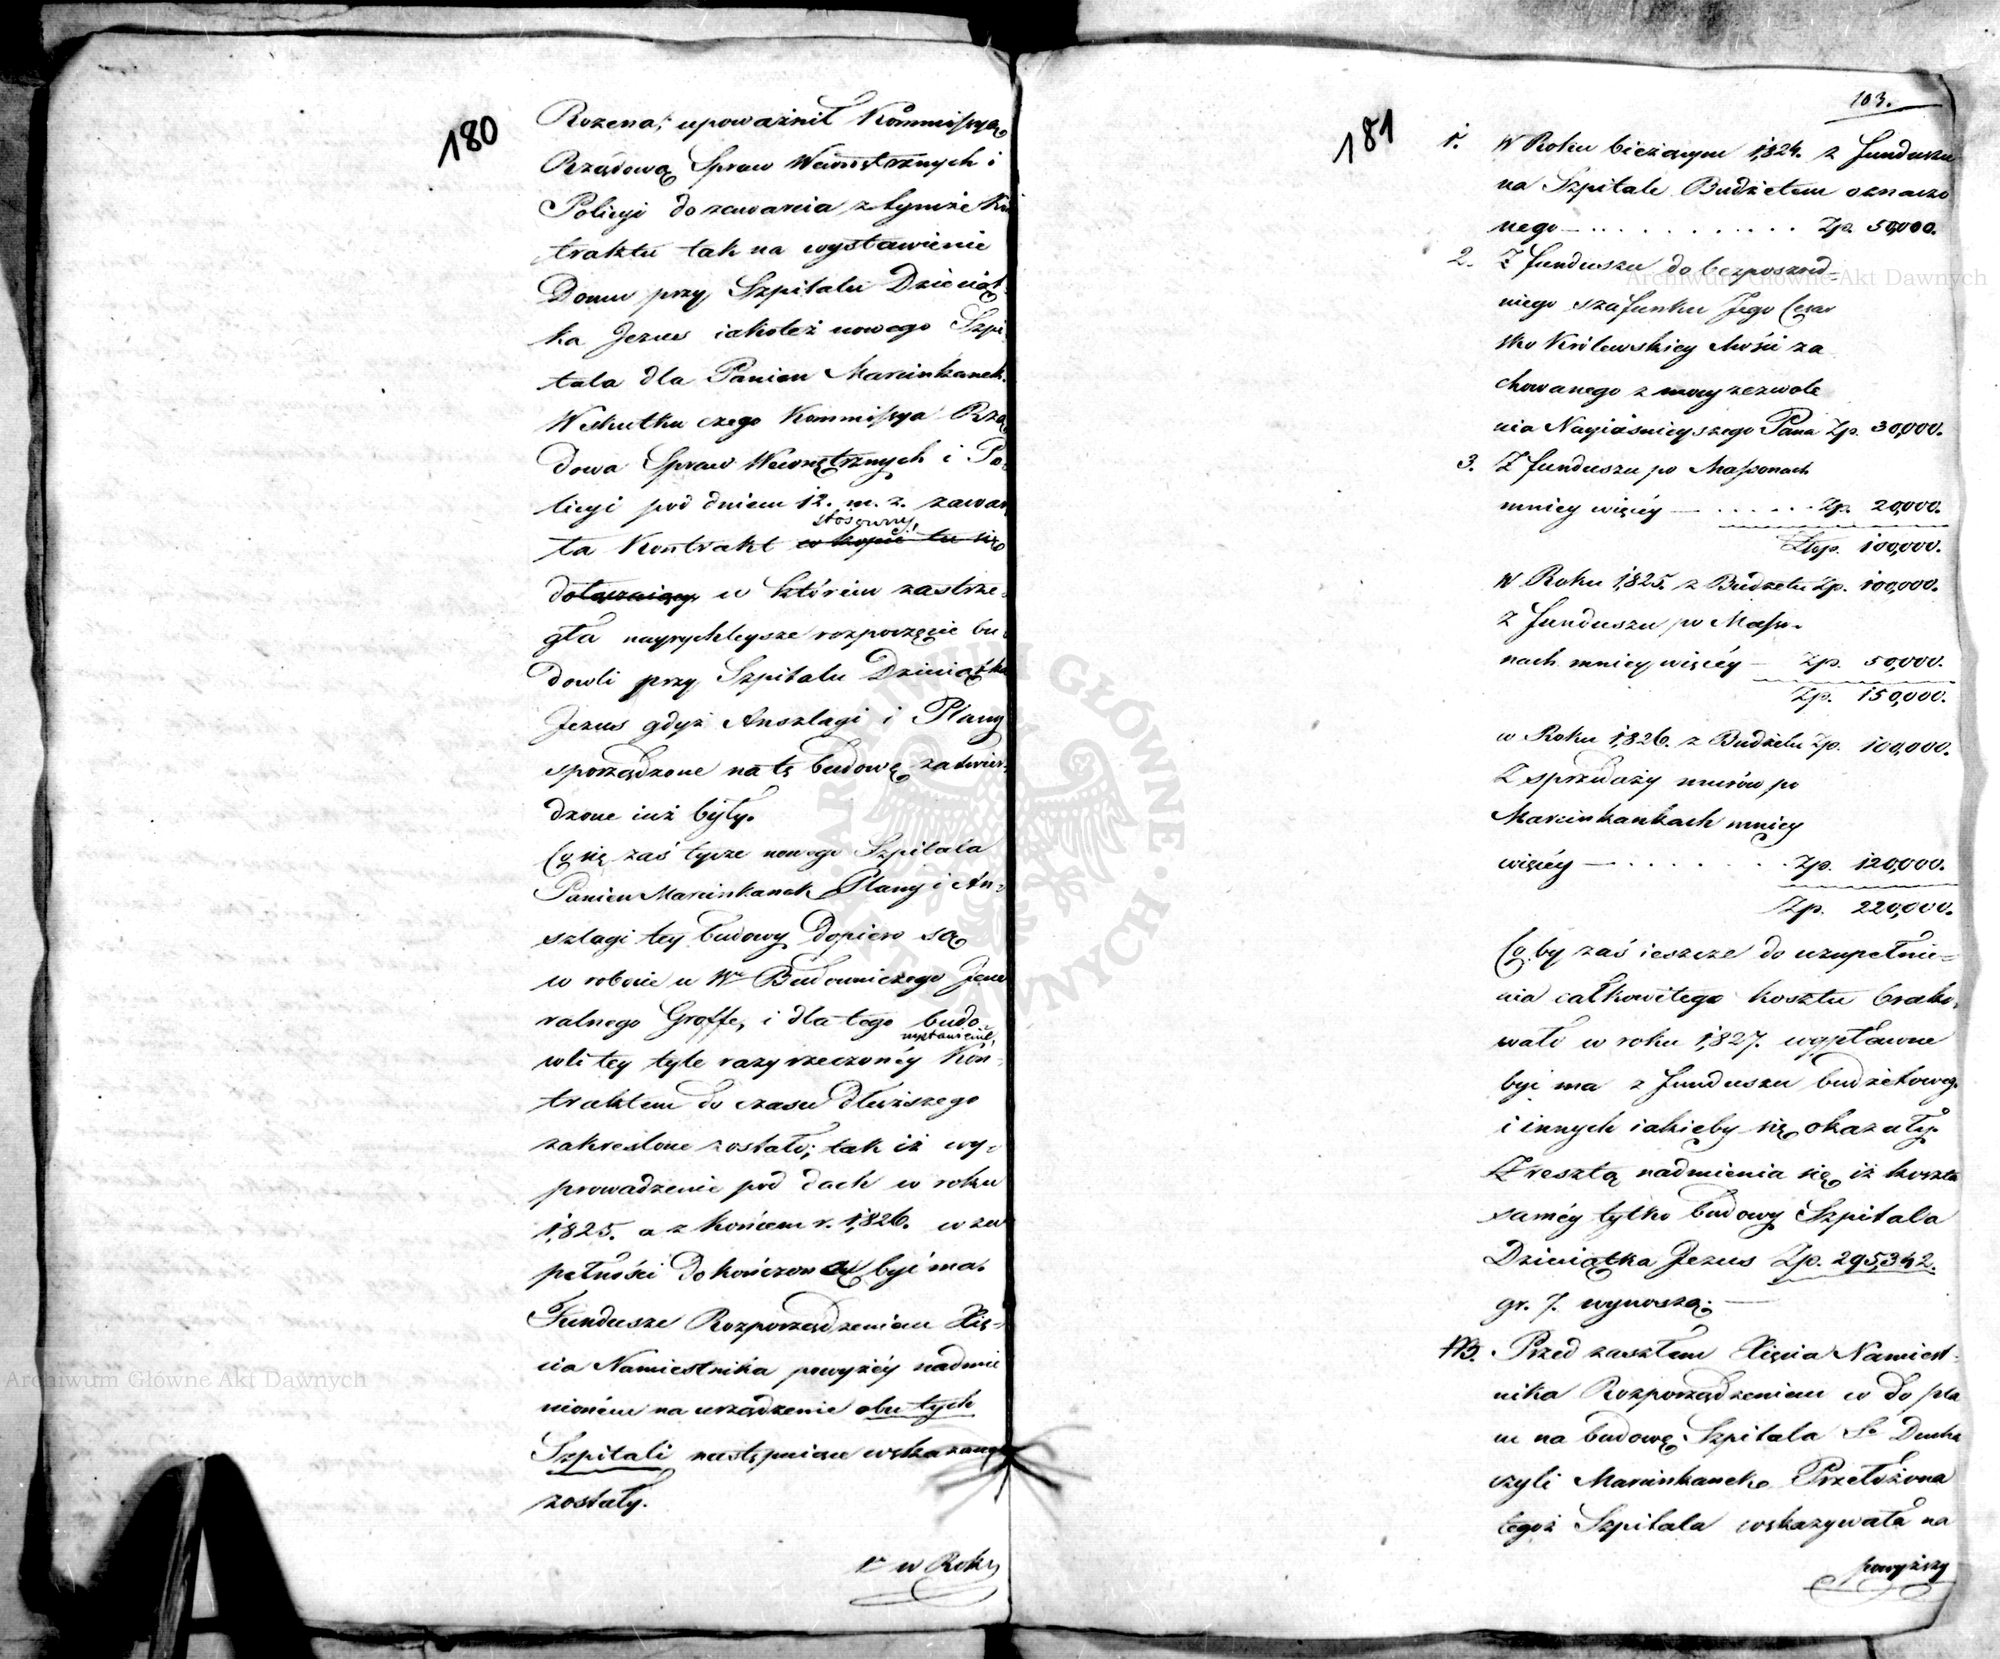 180
Rozena; upoważnił Kommissyą
Rządową Spraw Wewnętrznych i
Policyi do zawarcia z tymże Kon
traktu tak na wystawienie
Domu przy Szpitalu Dzieciąt-
ka Jezus iakoteż nowego Szpi
tala dla Panien Marcinkanek.
W skutku czego Kommissya Rzą
dowa Spraw Wewnętrznych i Po-
licyi pod dniem 12. m. z. zawar
stosowny,
ta Kontrakt w kopii tu się
dołączaiący w którém zastrze-
gła nayrychleysze rozpoczęcie bu-
dowli przy Szpitalu Dzieciątka
Jezus gdyż Anszlagi i Plany
sporządzone na tę budowę zatwier-
dzone iuż były.
Co się zaś tycze nowego Szpitala
Panien Marcinkanek Plany i An-
szlagi tey budowy dopiero są
w robocie u Wo Budowniczego Jene
ralnego Groffe, i dla tego budo-
wystawienie,
wli tey tyle razy rzeczonéy Kon-
traktem do czasu dłuższego
zakreślone zostało; tak iż wy-
prowadzenie pod dach w roku
1825. a z końcem r. 1826. w zu
pełności dokończona być ma.
Fundusze Rozporządzeniem Xię-
cia Namiestnika powyżéy nadmie
nioném na urządzenie obu tych
Szpitali następnian wskazane
zostały.
1o w Roku
103.
181
1. W Roku bieżącym 1824. z funduszu
na Szpitale Budżetem oznaczo
nego — . . . . . . . . . . . Zp. 50,000.
2. Z funduszu do bezpośred-
niego szafunku Jego Cesar
sko Królewskiey Mości za
chowanego z mocy zezwole
nia Nayiaśnieyszego Pana Zp. 30,000.
3. Z funduszu po Massonach
mniey więcéy — . . . . . . Zp. 20,000.
Złop. 100,000.
W Roku 1825. z Budżetu Zp. 100,000.
Z funduszu po Masso-
nach mniey więcéy — Zp. 50,000.
Zp. 150,000.
w Roku 1826. z Budżetu Zp. 100,000.
Z sprzedaży murów po
Marcinkankach mniey
więcéy — . . . . . . . Zp. 120,000.
Zp. 220,000.
Co by zaś ieszcze do uzupełnie-
nia całkowitego kosztu brako-
wało w roku 1827. wypłacone
być ma z funduszu budżetowego
i innych iakieby się okazały.
Z resztą nadmienia się iż koszta
saméy tylko budowy Szpitala
Dzieciątka Jezus Zp. 295,342.
gr. 7. wynoszą; —
NB. Przed zaszłem Xięcia Namiest-
nika Rozporządzeniem co do pla
nu na budowę Szpitala So Ducha
czyli Marcinkanek Przełożona
tegoż Szpitala wskazywała na
powyższy
Archiwum Główne Akt Dawnych
Archiwum Główne Akt Dawnych
ARCHIWUM GŁÓWNE AKT DAWNYCH